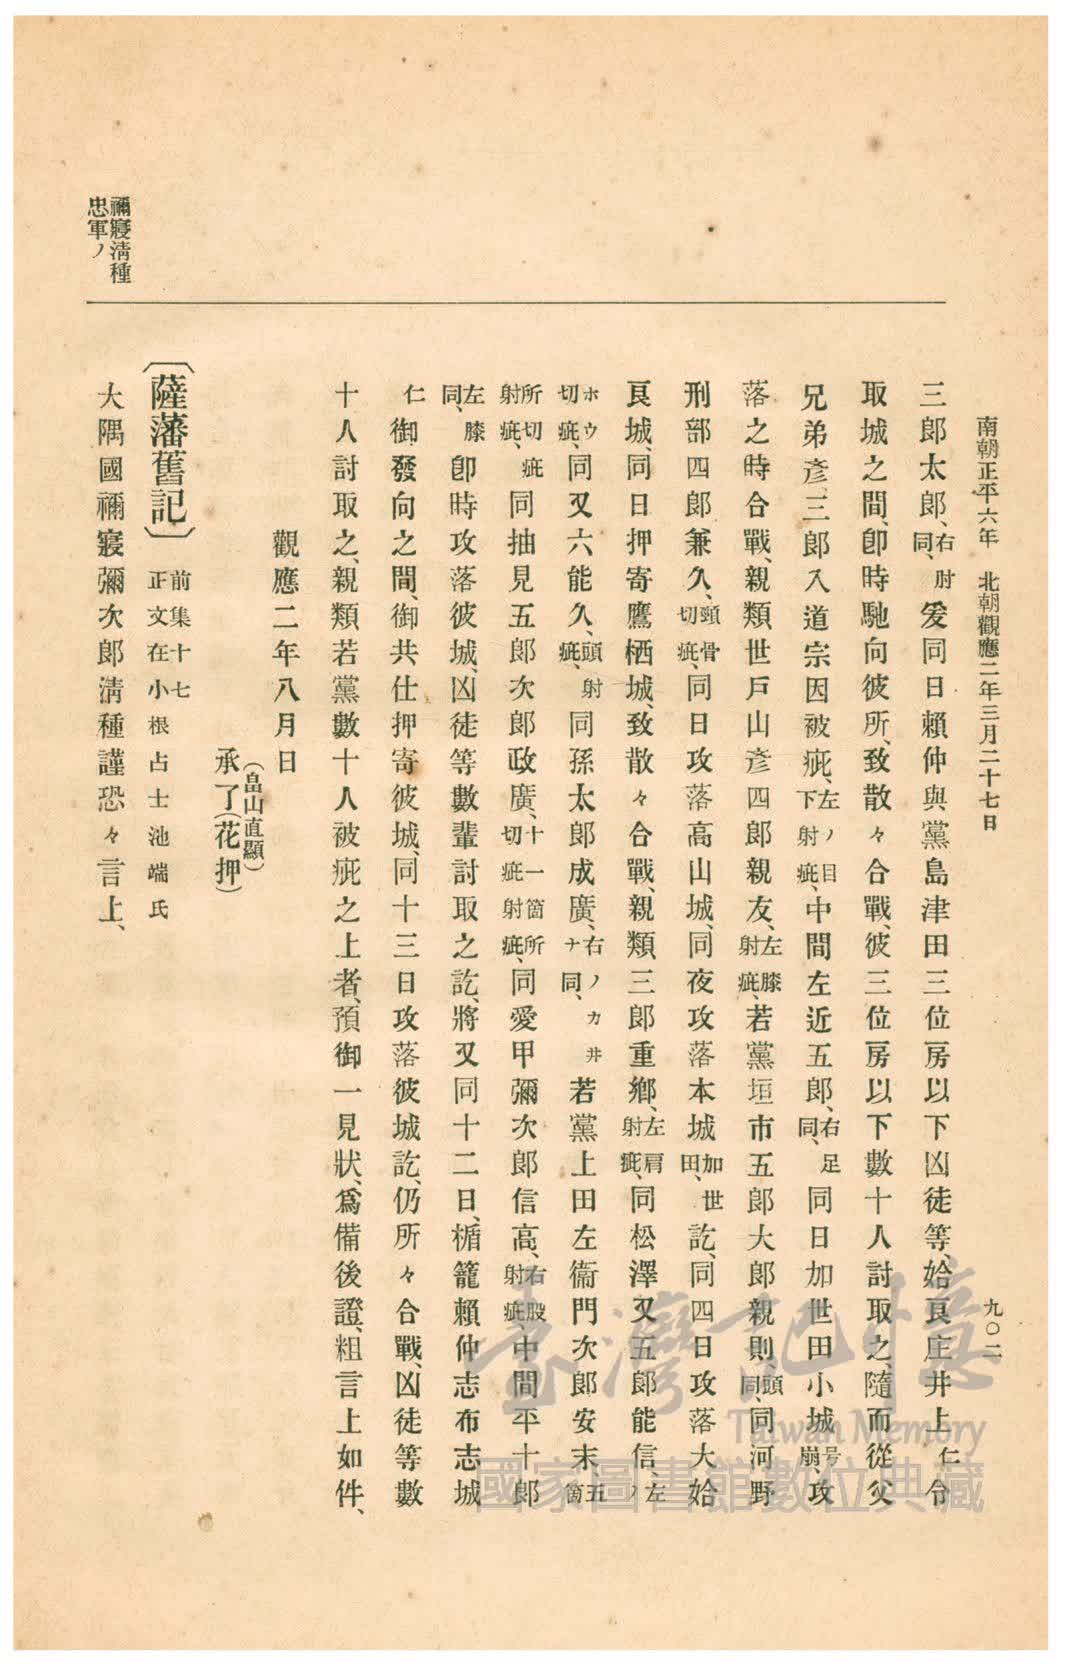 南朝正平六年　北朝觀應二年三月二十七日
九〇二
三郎太郎、右肘同、爰同日賴仲與黨島津田三位房以下凶徒等、始良庄井上仁令
取城之間、卽時馳向彼所、致散々合戰、彼三位房以下數十人討取之、隨而從父
兄弟彥三郎入道宗因被疵、左ノ目下射疵、中間左近五郎、右足同、同日加世田小城号崩、攻
落之時合戰、親類世戶山彥四郎親友、左膝射疵、若黨垣市五郎大郎親則、頭同、同河野
刑部四郎兼久、頸骨切疵、同日攻落高山城、同夜攻落本城加世田、訖、同四日攻落大姶
良城、同日押寄鷹栖城、致散々合戰、親類三郎重鄕、左肩射疵、同松澤又五郎能信、左ノ
ホウ切疵、同又六能久、頭射疵、同孫太郎成廣、右ノカ井ナ同、若黨上田左衞門次郎安末五箇
所切疵射疵、同抽見五郎次郎政廣、十一箇所切疵射疵、同愛甲彌次郎信高、右股射疵、中間平十郎
左膝同、卽時攻落彼城、凶徒等數輩討取之訖、將又同十二日、楯籠賴仲志布志城
仁御發向之間、御共仕押寄彼城、同十三日攻落彼城訖、仍所々合戰、凶徒等數
十人討取之、親類若黨數十人被疵之上者、預御一見狀、爲備後證、粗言上如件、
觀應二年八月日
（畠山直顯）
承了（花押）
〔薩藩舊記〕前集十七　正文在小根占士池端氏
大隅國禰寢彌次郎淸種謹恐々言上、
禰寢淸種
忠軍ノ
臺灣記憶
Taiwan Memory
國家圖書館數位典藏